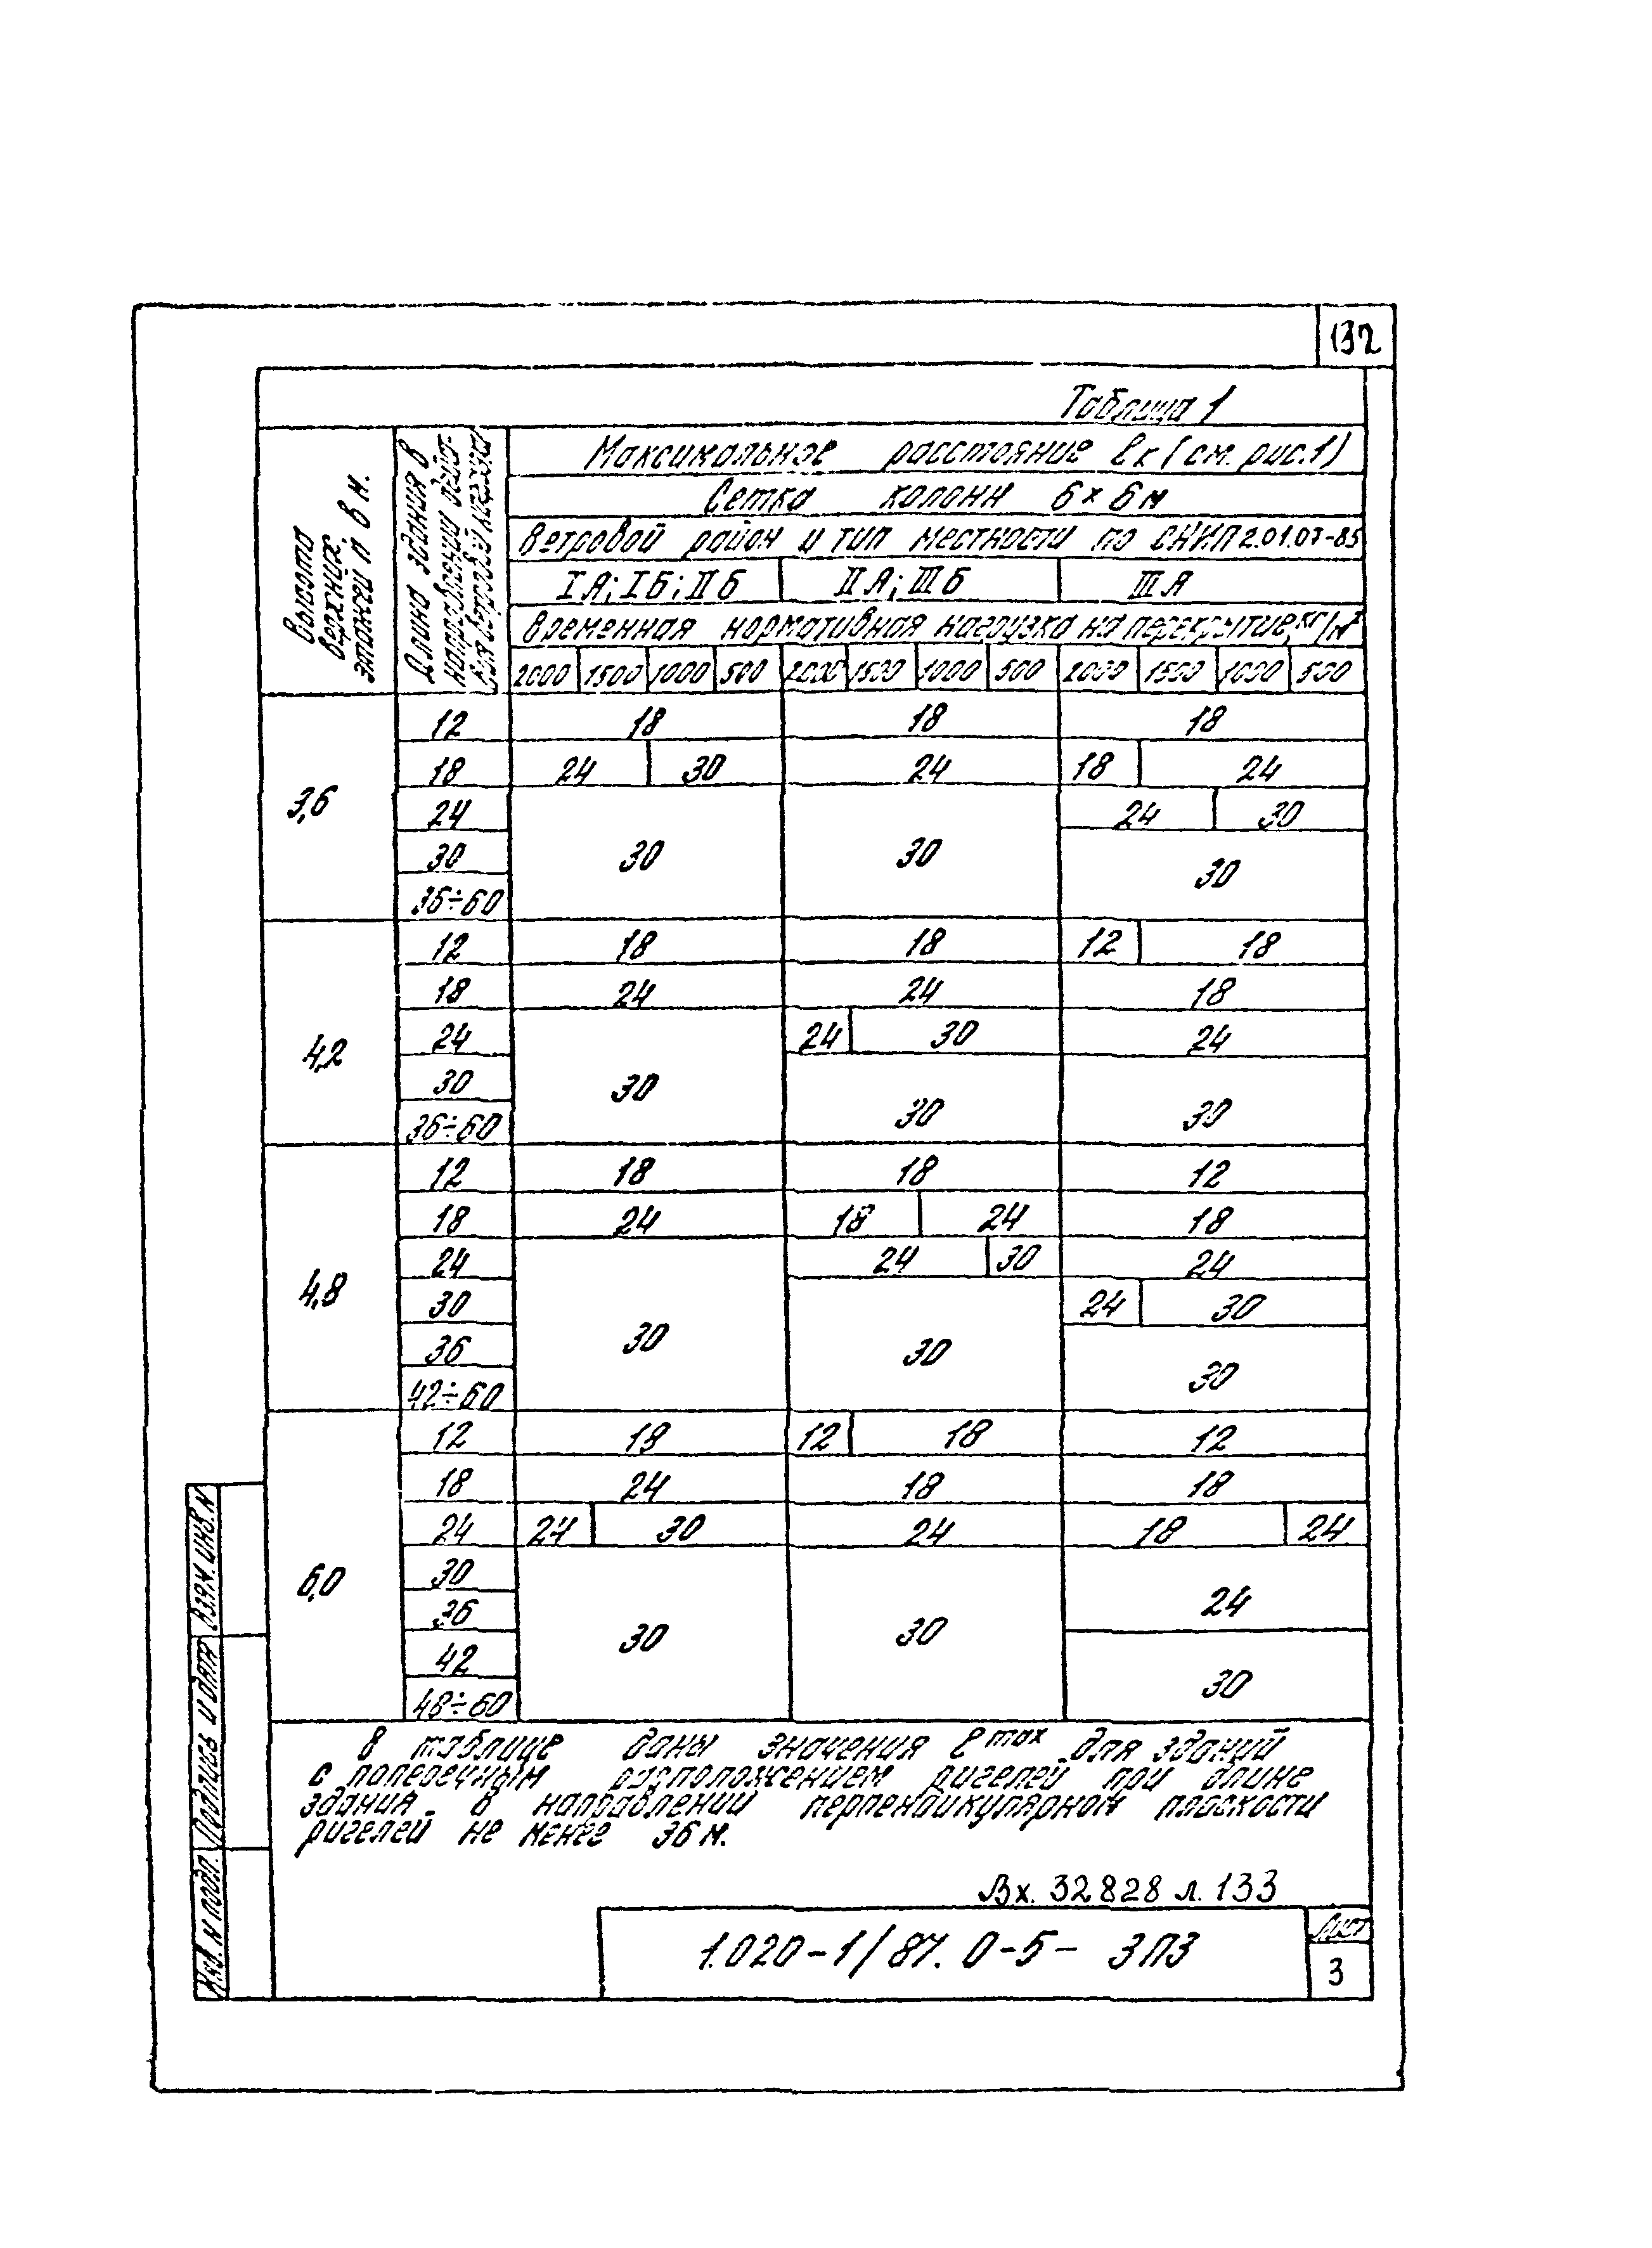 132
Таблица 1
Высота верхних этажей п в м.
Длина здания в направлении действия ветровой нагрузки
Максимальное расстояние ℓк (см. рис.1)
Сетка колонн 6×6м
Ветровой район и тип местности по СНИП 2.01.07-85
IА; IБ; IIБ IIА; IIIБ IIIА
Временная нормативная нагрузка на перекрытие, кг/м²
2000 1500 1000 500 2000 1500 1000 500 2000 1500 1000 500
3,6
12 18 18 18
18 24 30 24 18 24
24 24 30
30 30 30 30
36÷60
4,2
12 18 18 12 18
18 24 24 18
24 24 30 24
30 30 30 30
36÷60
4,8
12 18 18 12
18 24 18 24 18
24 24 30 24
30 24 30
36 30 30 30
42÷60
6,0
12 18 12 18 12
18 24 18 18
24 24 30 24 18 24
30
36 24
42 30 30 30
48÷60
В таблице даны значения ℓmax для зданий
с поперечным расположением ригелей при длине
здания в направлении перпендикулярном плоскости
ригелей не менее 36 м.
Вх. 32828 л. 133
1.020-1/87. 0-5- 3ПЗ
Лист
3
Взам. инв. N
Подпись и дата
Инв. N подл.